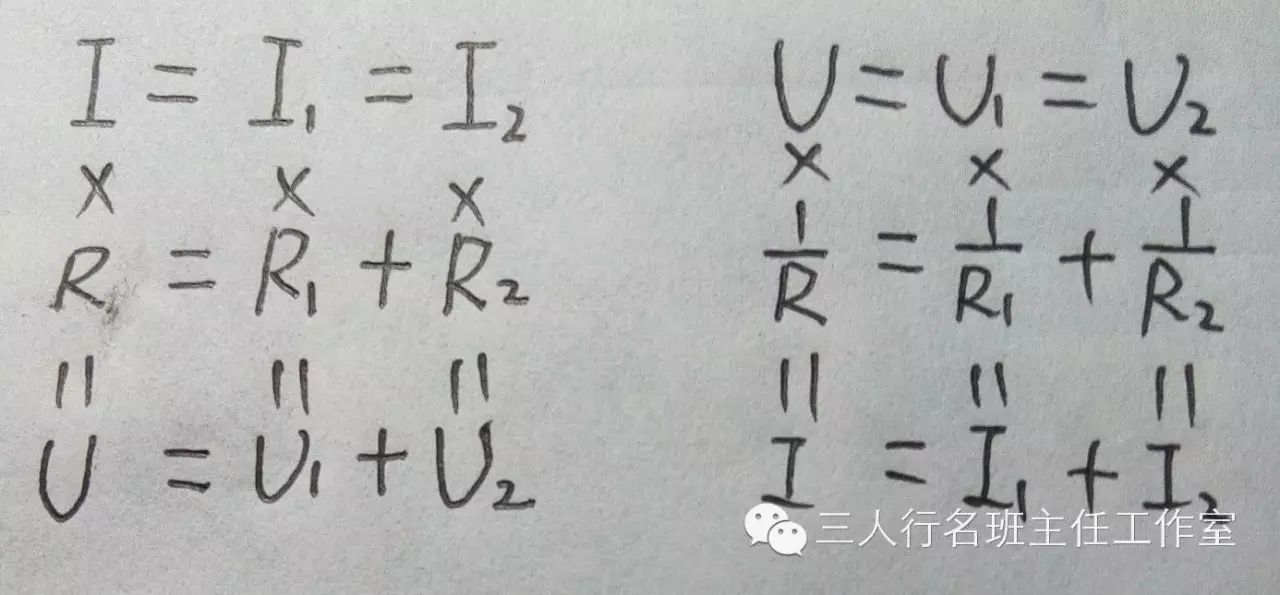 I = I₁ = I₂
× × ×
R = R₁ + R₂
|| || ||
U = U₁ + U₂
U = U₁ = U₂
× × ×
1/R = 1/R₁ + 1/R₂
|| || ||
I = I₁ + I₂
三人行名班主任工作室